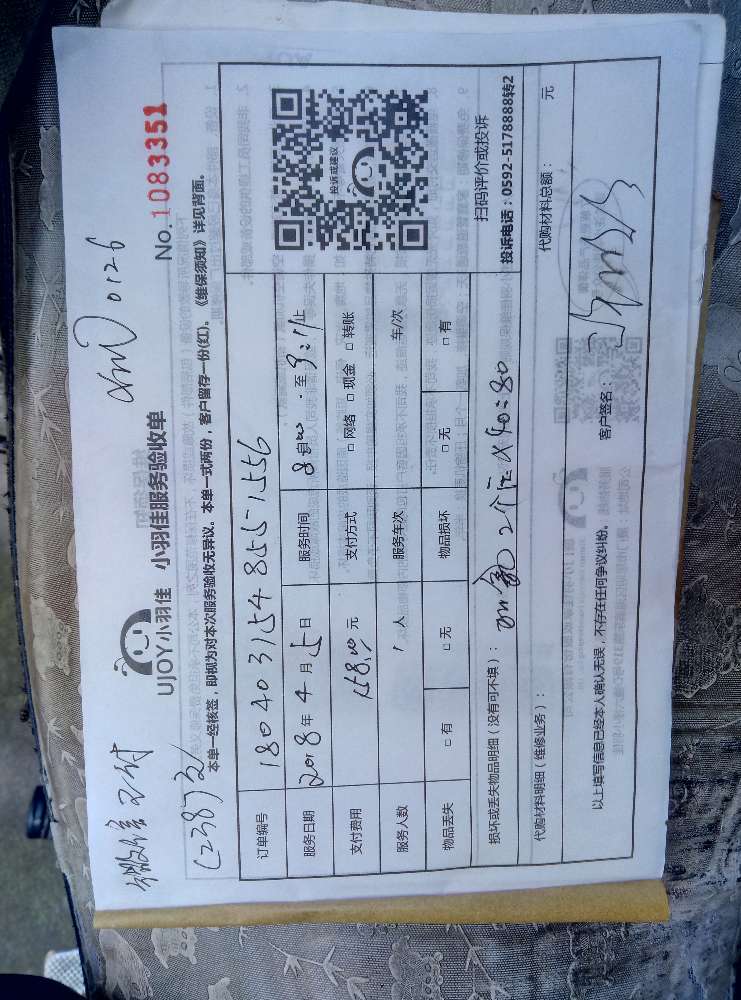 微信已付
0126
UJOY小羽佳 小羽佳服务验收单
No.1083351
本单一经核签，即视为对本次服务验收无异议。本单一式两份，客户留存一份(红)。《维保须知》详见背面。
订单编号 180403154855571556
服务日期 2018年4月5日 服务时间 8自00·至9:11止
支付费用 158.00元 支付方式 □网络 □现金 □转账
服务人数 1人 服务车次 车/次
物品丢失 □有 □无 物品损坏 □无 □有
投诉或建议
扫码评价或投诉
投诉电话：0592-5178888转2
损坏或丢失物品明细（没有可不填）： 2个 X40=80
代购材料明细（维修业务）：
代购材料总额： 元
以上填写信息已经本人确认无误，不存在任何争议纠纷。
客户签名：